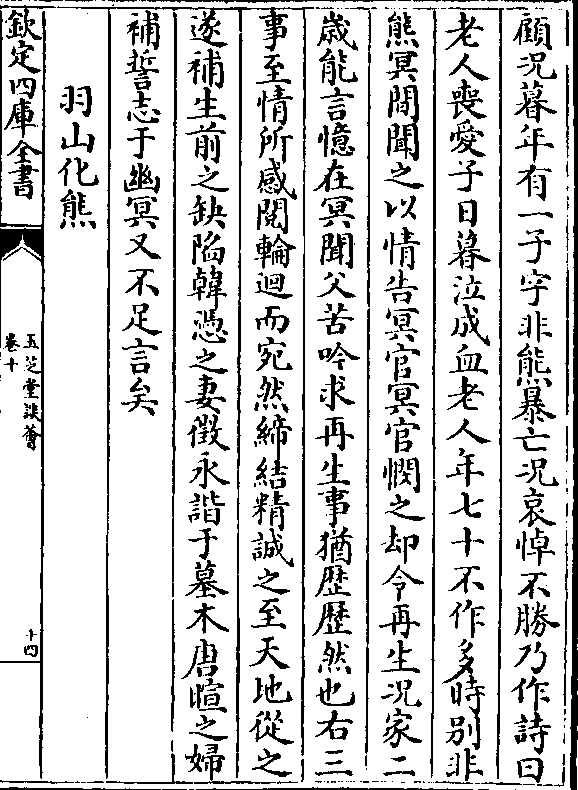 顧况暮年有一子字非熊暴亡况哀悼不勝乃作詩曰
老人喪愛子日暮泣成血老人年七十不作多時别非
熊冥間聞之以情告冥官冥官憫之却令再生况家二
嵗能言憶在冥聞父苦吟求再生事猶歴歴然也右三
事至情所感閲輪迴而宛然締結精誠之至天地從之
遂補生前之缺陷韓憑之妻徴永諧于墓木唐暄之婦
補誓志于幽冥又不足言矣
羽山化熊
欽定四庫全書
玉芝堂談薈
卷十
十四